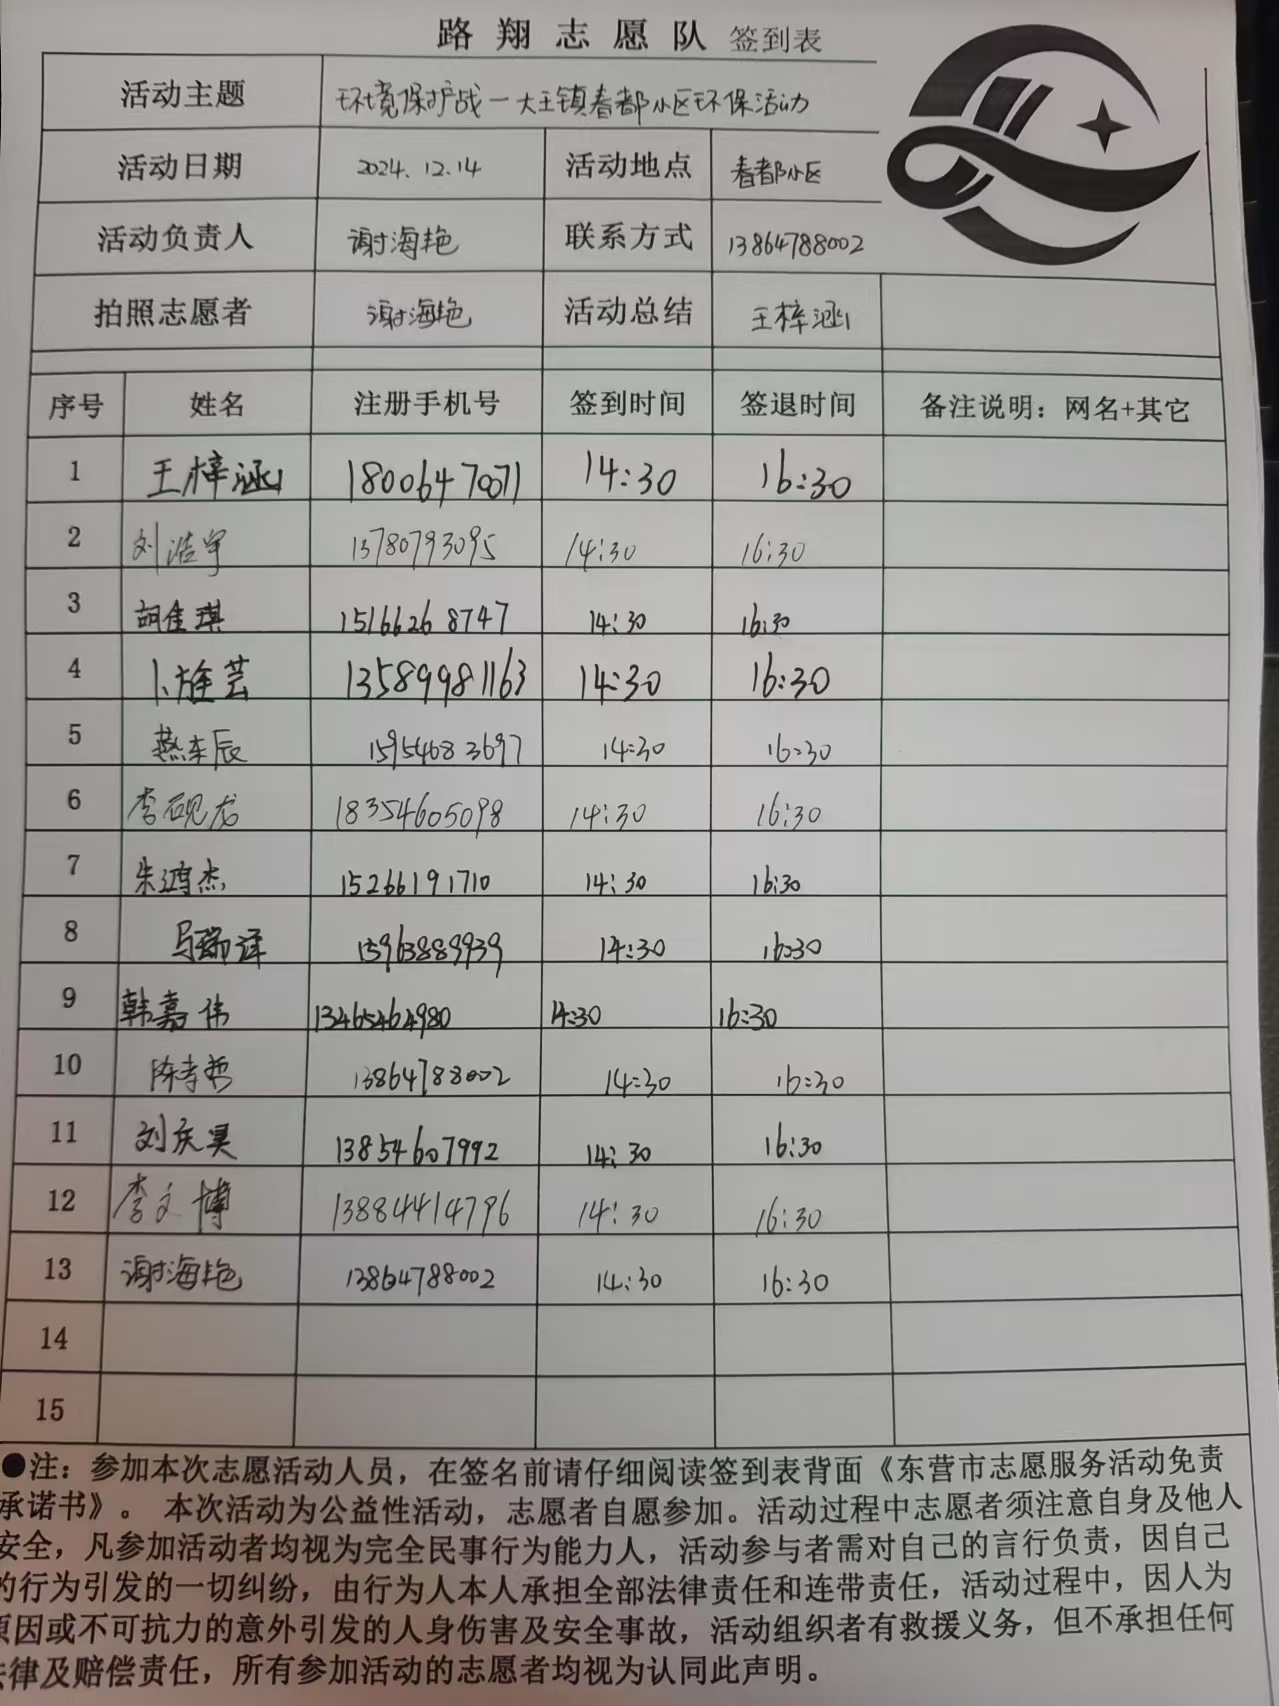 路翔志愿队 签到表
活动主题 环境保护战一大王镇春都小区环保活动
活动日期 2024.12.14 活动地点 春都小区
活动负责人 谢海艳 联系方式 13864788002
拍照志愿者 谢海艳 活动总结 王梓涵
序号 姓名 注册手机号 签到时间 签退时间 备注说明：网名+其它
1 王梓涵 18006470071 14:30 16:30
2 刘浩宇 13780793095 14:30 16:30
3 胡佳琪 15166268747 14:30 16:30
4 13589981163 14:30 16:30
5 燕东辰 15954683697 14:30 16:30
6 李砚龙 18354605098 14:30 16:30
7 朱鸿杰 15266191710 14:30 16:30
8 马瑞泽 13963889939 14:30 16:30
9 韩嘉伟 13465464980 14:30 16:30
10 陈孝哲 13864788002 14:30 16:30
11 刘庆昊 13854607992 14:30 16:30
12 李文博 13884414796 14:30 16:30
13 谢海艳 13864788002 14:30 16:30
14
15
●注：参加本次志愿活动人员，在签名前请仔细阅读签到表背面《东营市志愿服务活动免责
承诺书》。 本次活动为公益性活动，志愿者自愿参加。活动过程中志愿者须注意自身及他人
安全，凡参加活动者均视为完全民事行为能力人，活动参与者需对自己的言行负责，因自己
的行为引发的一切纠纷，由行为人本人承担全部法律责任和连带责任，活动过程中，因人为
原因或不可抗力的意外引发的人身伤害及安全事故，活动组织者有救援义务，但不承担任何
法律及赔偿责任，所有参加活动的志愿者均视为认同此声明。